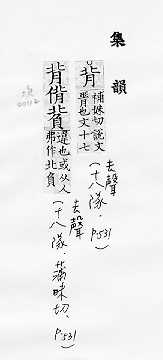 集韻
背
補妹切說文
脊也文十七
(去聲
十八隊.p.531)
背偝䝿
違也或从人
弗作北負
去聲
(十八隊.蒲昧切.p.531)